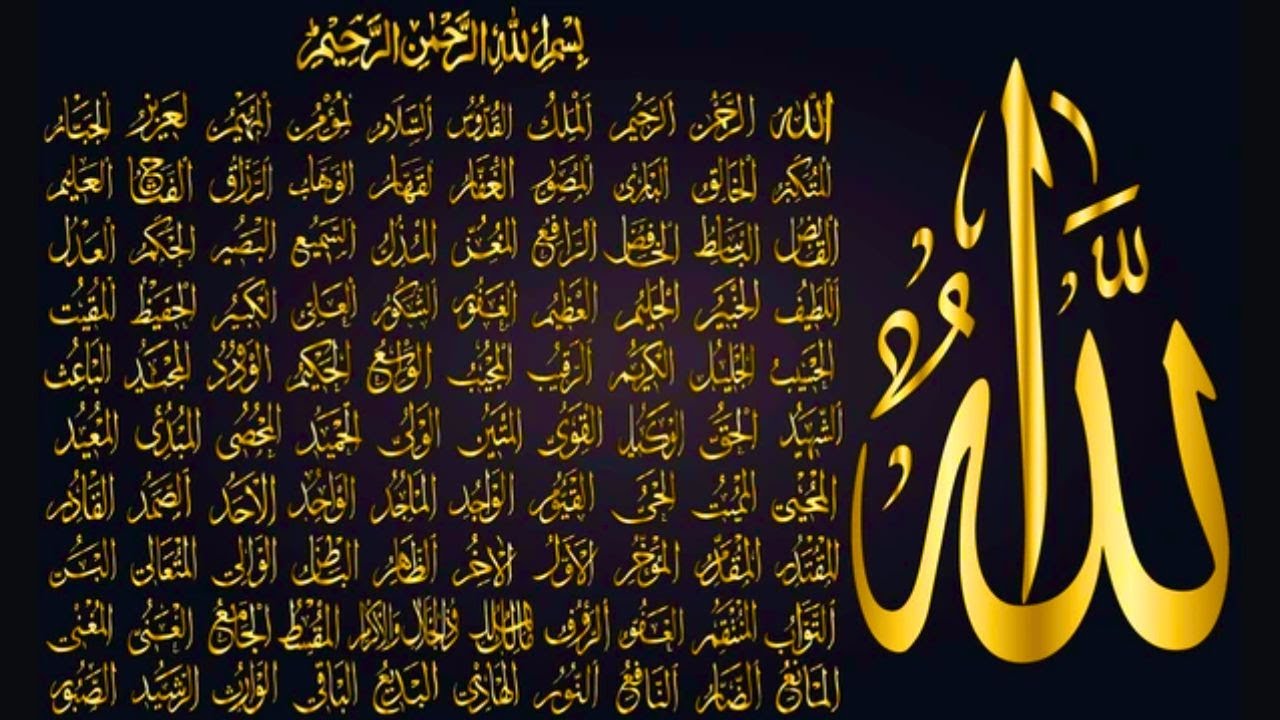 بِسْمِ اللهِ الرَّحْمٰنِ الرَّحِيْمِ
الله الرحمن الرحيم الملك القدوس السلام المؤمن المهيمن العزيز الجبار
المتكبر الخالق البارئ المصور الغفار القهار الوهاب الرزاق الفتاح العليم
القابض الباسط الخافض الرافع المعز المذل السميع البصير الحكم العدل
اللطيف الخبير الحليم العظيم الغفور الشكور العلي الكبير الحفيظ المقيت
الحسيب الجليل الكريم الرقيب المجيب الواسع الحكيم الودود المجيد الباعث
الشهيد الحق الوكيل القوى المتين الولى الحميد المحصى المبدئ المعيد
المحيى المميت الحي القيوم الواجد الماجد الواحد الاحد الصمد القادر
المقتدر المقدم المؤخر الاول الاخر الظاهر الباطن الوالى المتعالى البر
التواب المنتقم العفو الرؤف مالك الملك ذوالجلال والاكرام المقسط الجامع الغنى المغنى
المانع الضار النافع النور الهادى البديع الباقى الوارث الرشيد الصبور
الله